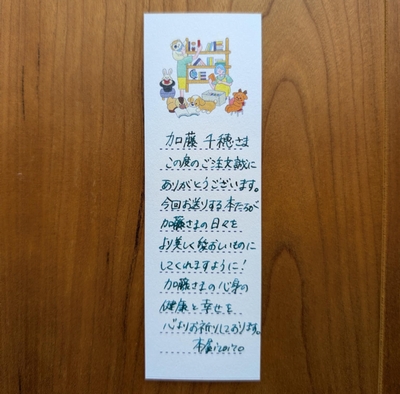 加藤 千穂さま
この度のご注文誠に
ありがとうございます。
今回お送りする本たちが
加藤さまの日々を
より美しく愛おしいものに
してくれますように！
加藤さまの心身の
健康と幸せを
心よりお祈りしております。
本屋iroiro